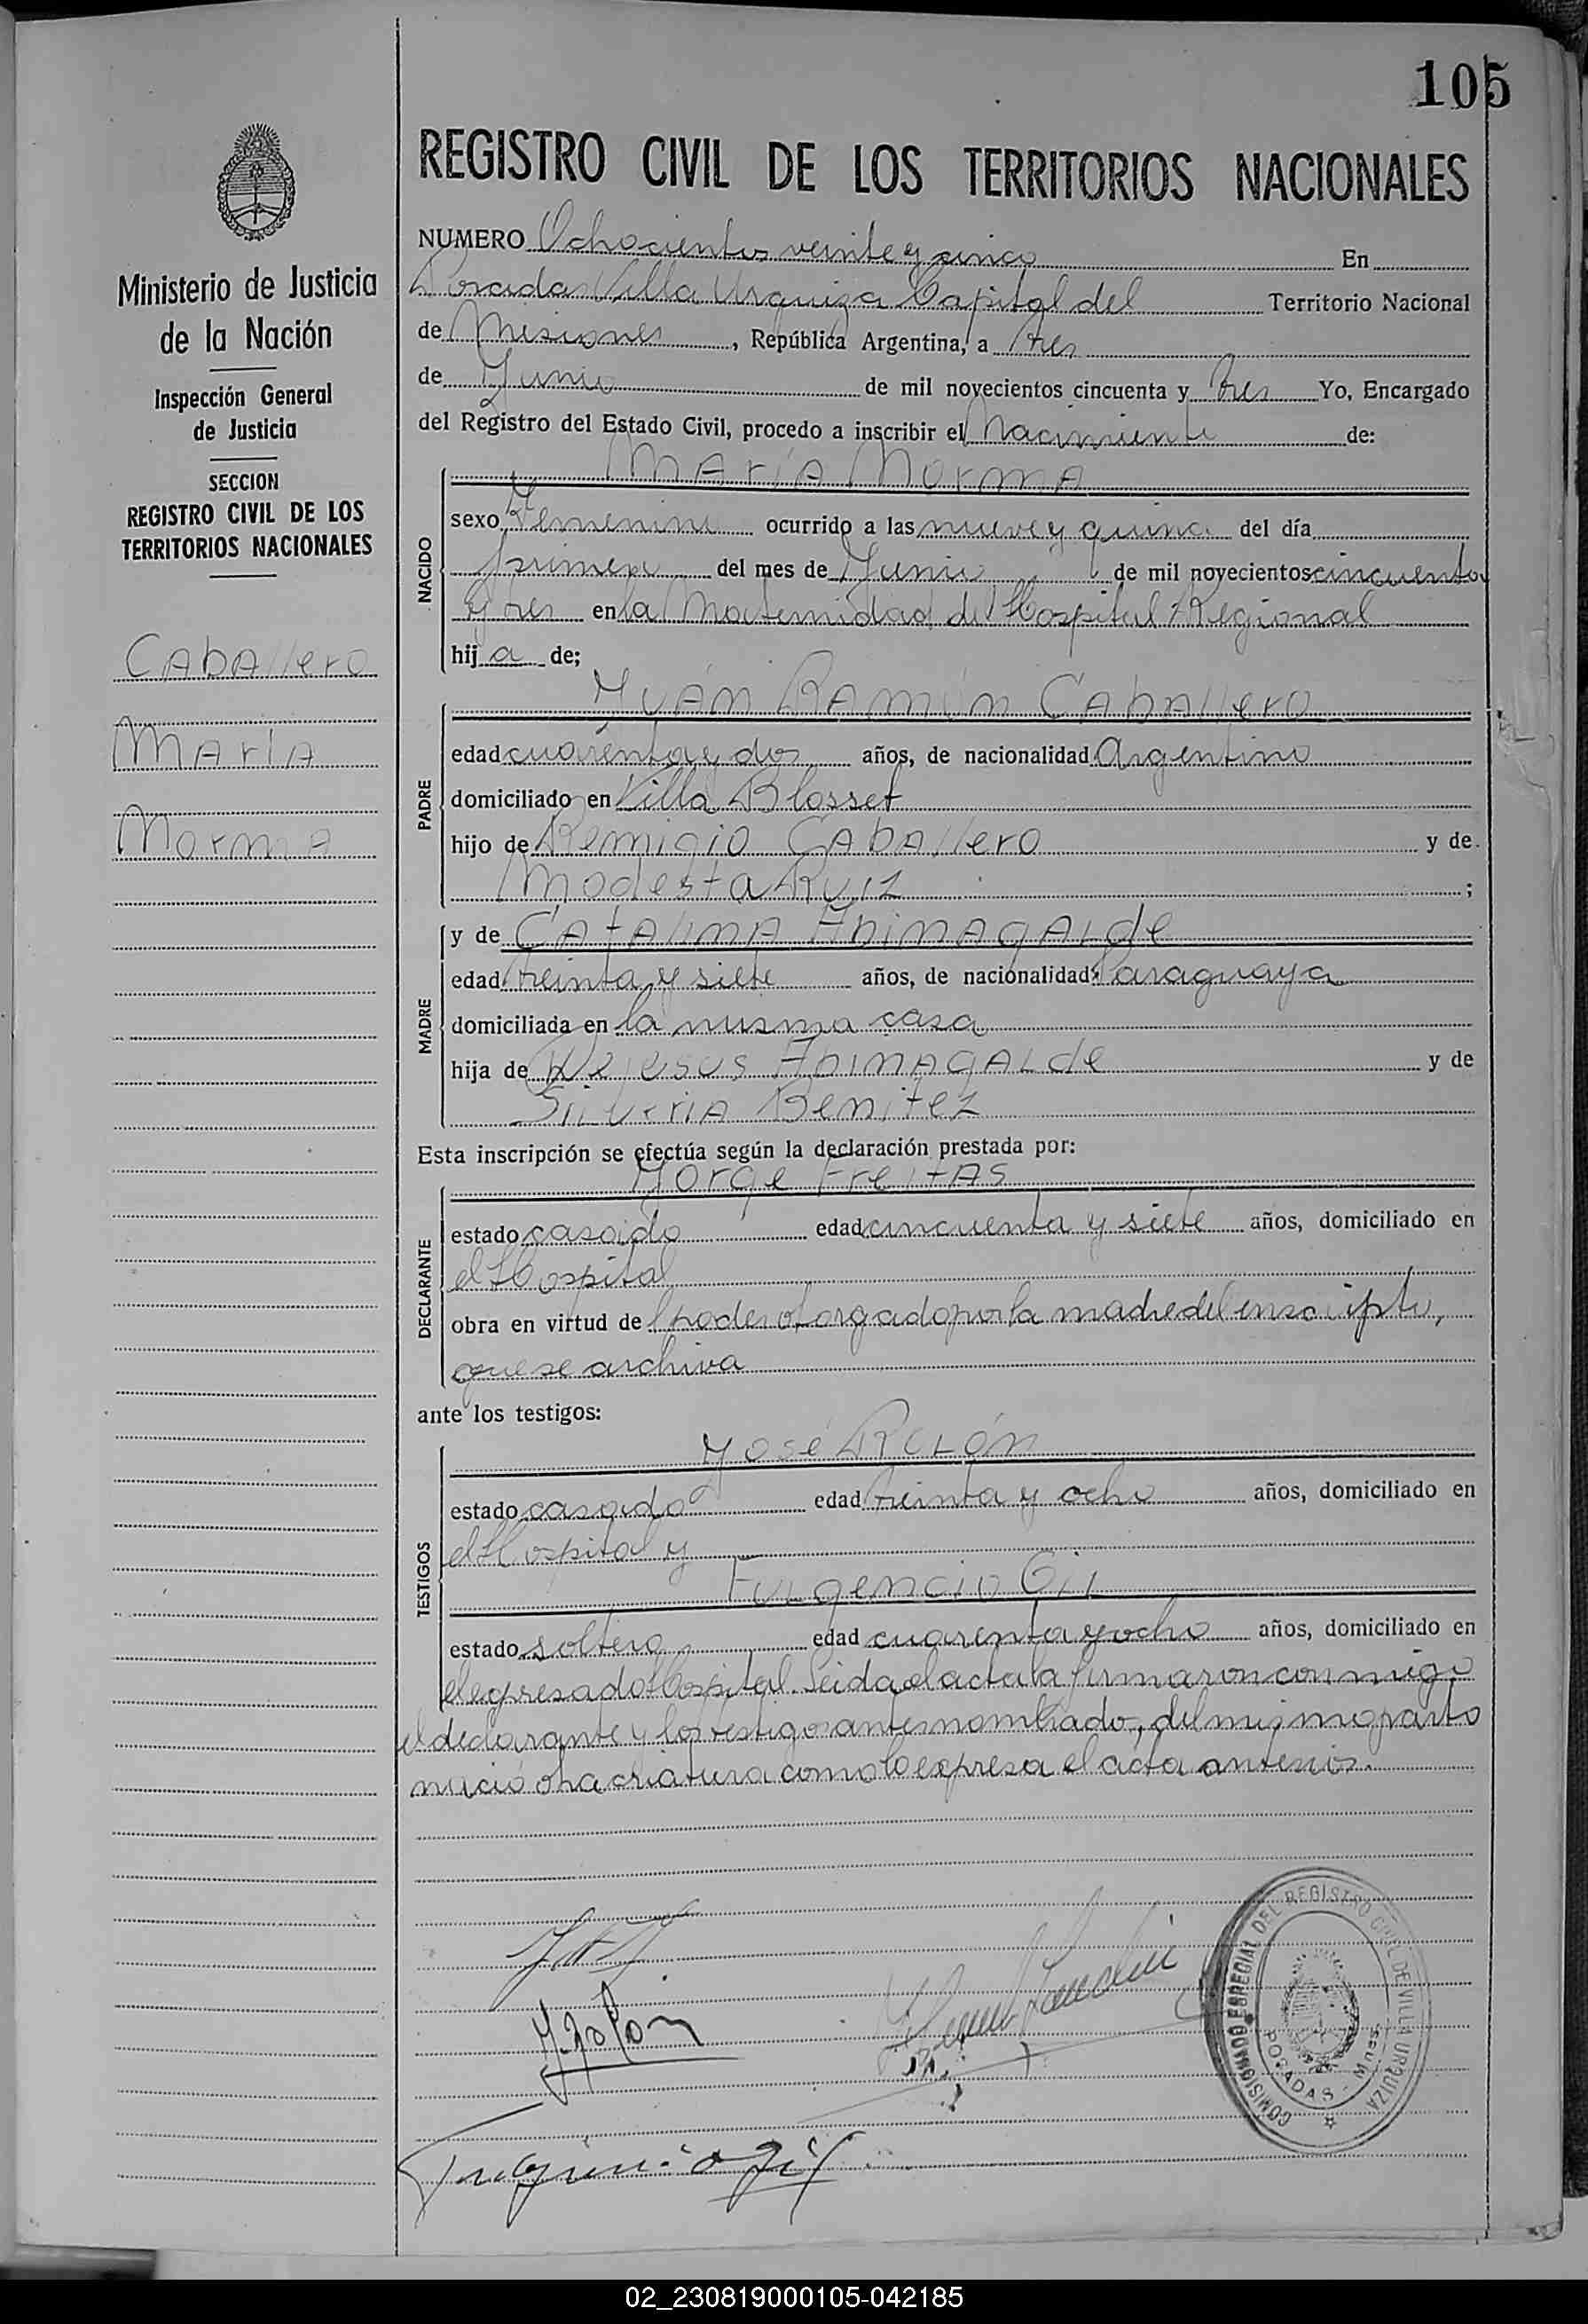 105
REGISTRO CIVIL DE LOS TERRITORIOS NACIONALES
Ministerio de Justicia
de la Nación
Inspección General
de Justicia
SECCION
REGISTRO CIVIL DE LOS
TERRITORIOS NACIONALES
Caballero
María
Norma
NUMERO Ochocientos veinte y cinco En
Posadas Villa Urquiza Capital del Territorio Nacional
de Misiones, República Argentina, a tres
de Junio de mil novecientos cincuenta y tres Yo, Encargado
del Registro del Estado Civil, procedo a inscribir el Nacimiento de:
NACIDO
María Norma
sexo Femenino ocurrido a las nueve y quince del día
primero del mes de Junio de mil novecientos cincuenta
y tres en la Maternidad del Hospital Regional
hija de;
PADRE
Juán Ramón Caballero
edad cuarenta y dos años, de nacionalidad Argentino
domiciliado en Villa Blosset
hijo de Remigio Caballero y de
Modesta Ruiz ;
MADRE
y de Catalina Abinagalde
edad treinta y siete años, de nacionalidad Paraguaya
domiciliada en la misma casa
hija de De Jesus Abinagalde y de
Silveria Benitez
Esta inscripción se efectúa según la declaración prestada por:
DECLARANTE
Jorge Freitas
estado casado edad cincuenta y siete años, domiciliado en
el Hospital
obra en virtud de poder otorgado por la madre del inscripto,
que se archiva
ante los testigos:
TESTIGOS
José Rolón
estado casado edad treinta y ocho años, domiciliado en
el Hospital y
Fulgencio Gil
estado soltero edad cuarenta y ocho años, domiciliado en
el expresado Hospital. Leida el acta la firmaron conmigo
el declarante y los testigos antes nombrado, del mismo parto
nació otra criatura como lo expresa el acta anterior.
J. Rolón
Fulgencio Gil
COMISIONADO ESPECIAL DEL REGISTRO CIVIL DE VILLA URQUIZA
POSADAS - Mnes.
02_230819000105-042185